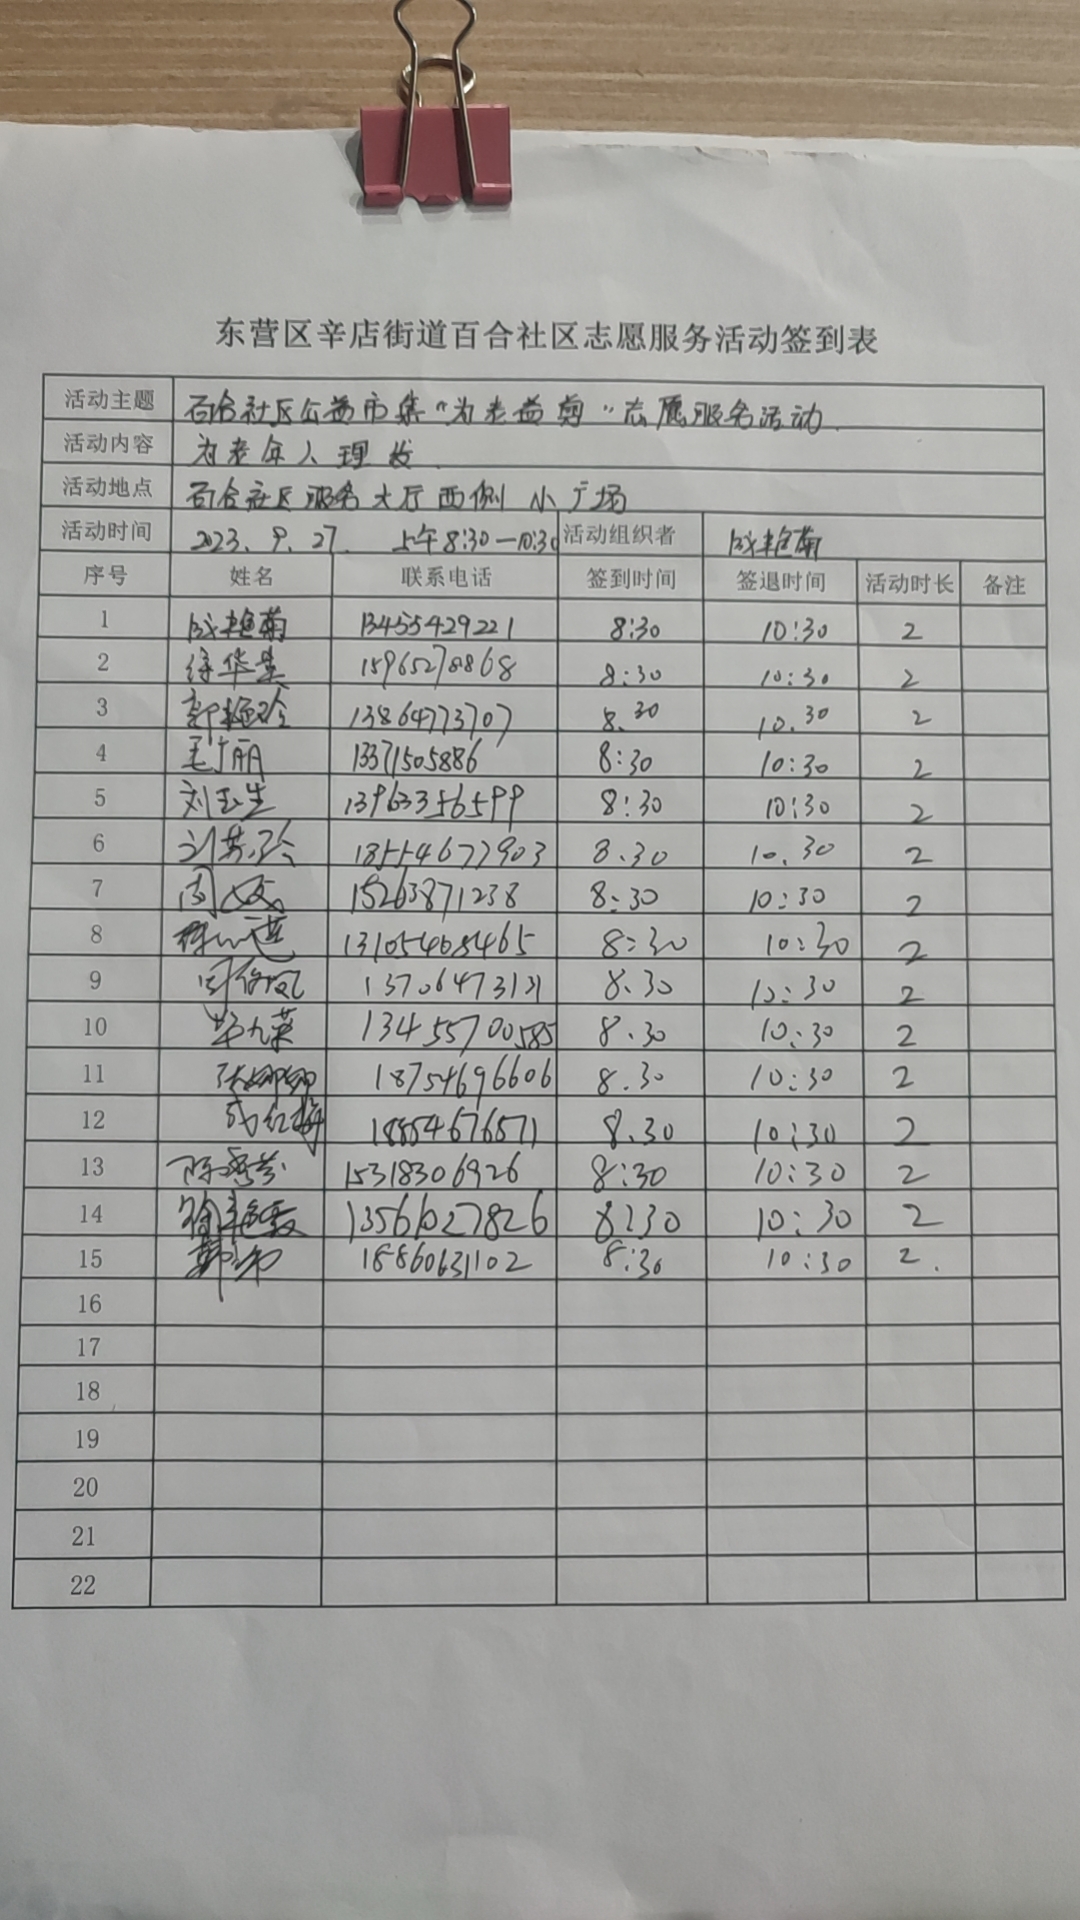 东营区辛店街道百合社区志愿服务活动签到表
活动主题 百合社区公益市集“为老益剪”志愿服务活动
活动内容 为老年人理发
活动地点 百合社区服务大厅西侧小广场
活动时间 2023.9.27. 上午8:30—10:30 活动组织者
序号 姓名 联系电话 签到时间 签退时间 活动时长 备注
1 13455429221 8:30 10:30 2
2 徐华 15965278868 8:30 10:30 2
3 郭艳玲 13864773707 8.30 10.30 2
4 毛广丽 13371505886 8:30 10:30 2
5 刘玉生 13963356599 8:30 10:30 2
6 18554677903 8.30 10.30 2
7 周 15263871238 8:30 10:30 2
8 131054684465 8:30 10:30 2
9 周俊凤 8.30 10:30 2
10 13455700585 8.30 10:30 2
11 张娜娜 18754696606 8.30 10:30 2
12 红梅 18854676571 8.30 10:30 2
13 陈秀芬 15318306926 8:30 10:30 2
14 徐艳霞 13561027826 8:30 10:30 2
15 18860631102 8:30 10:30 2.
16
17
18
19
20
21
22